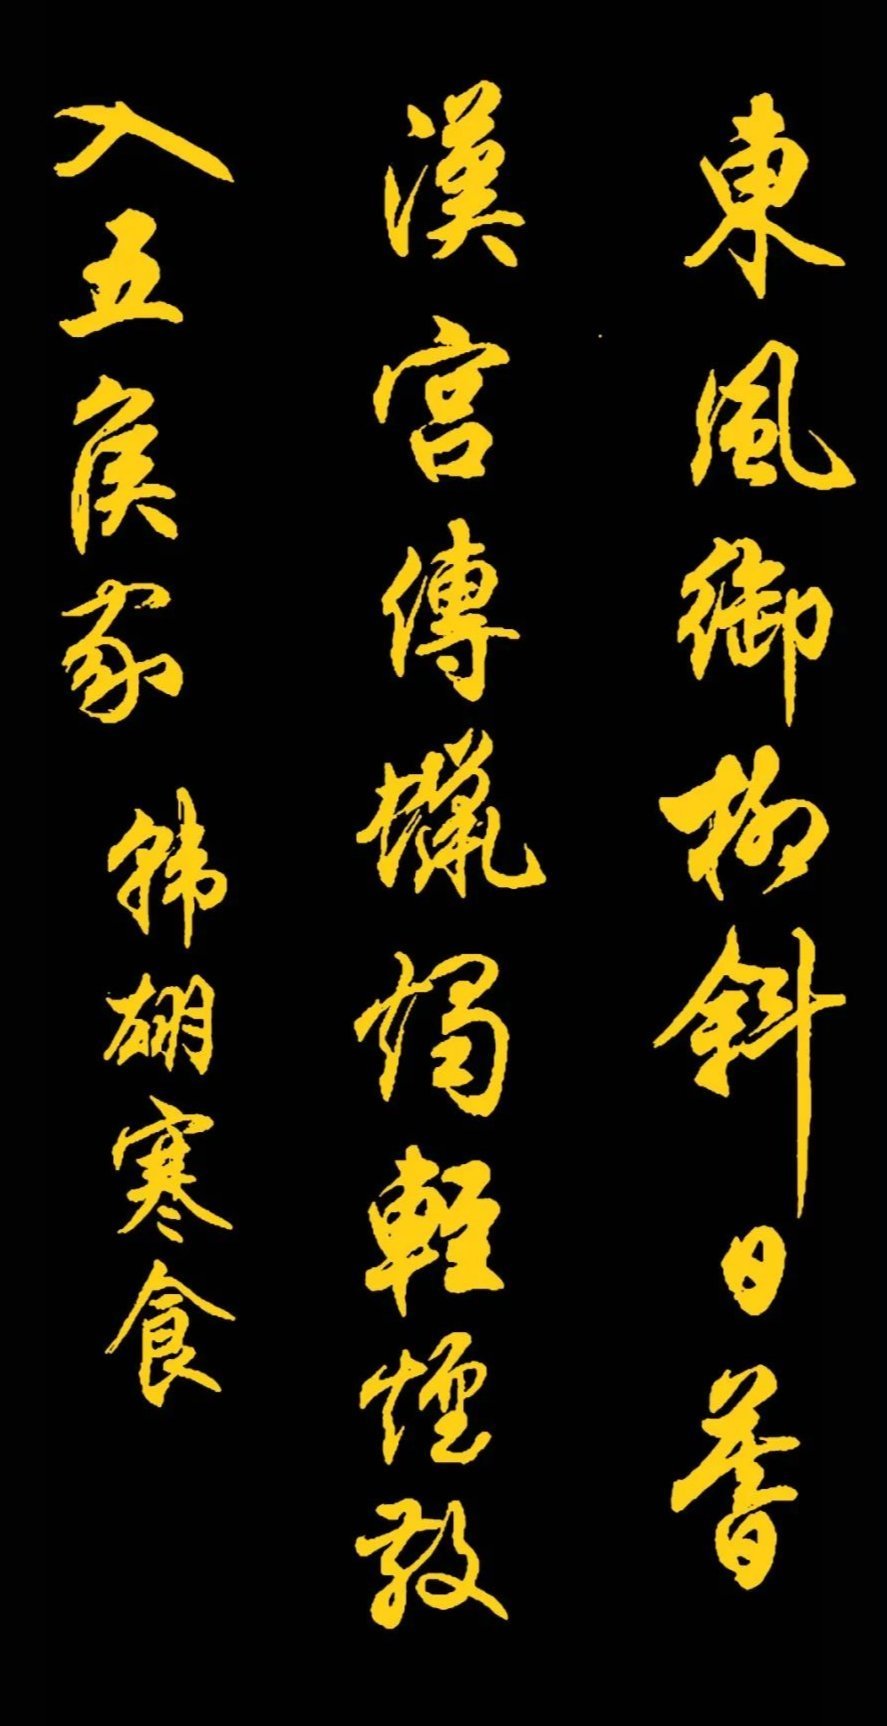 東風御柳斜日暮
漢宮傳蠟燭輕煙散
入五侯家 韩翃寒食